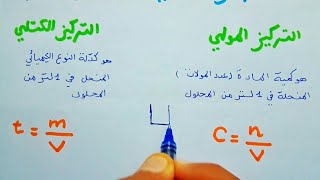 التركيز المولي
هو كمية المادة (عدد المولات)
المنحلة في 1 لتر من المحلول
C = n/V
التركيز الكتلي
هو كتلة النوع الكيميائي
المنحل في 1 لتر من
المحلول
t = m/V